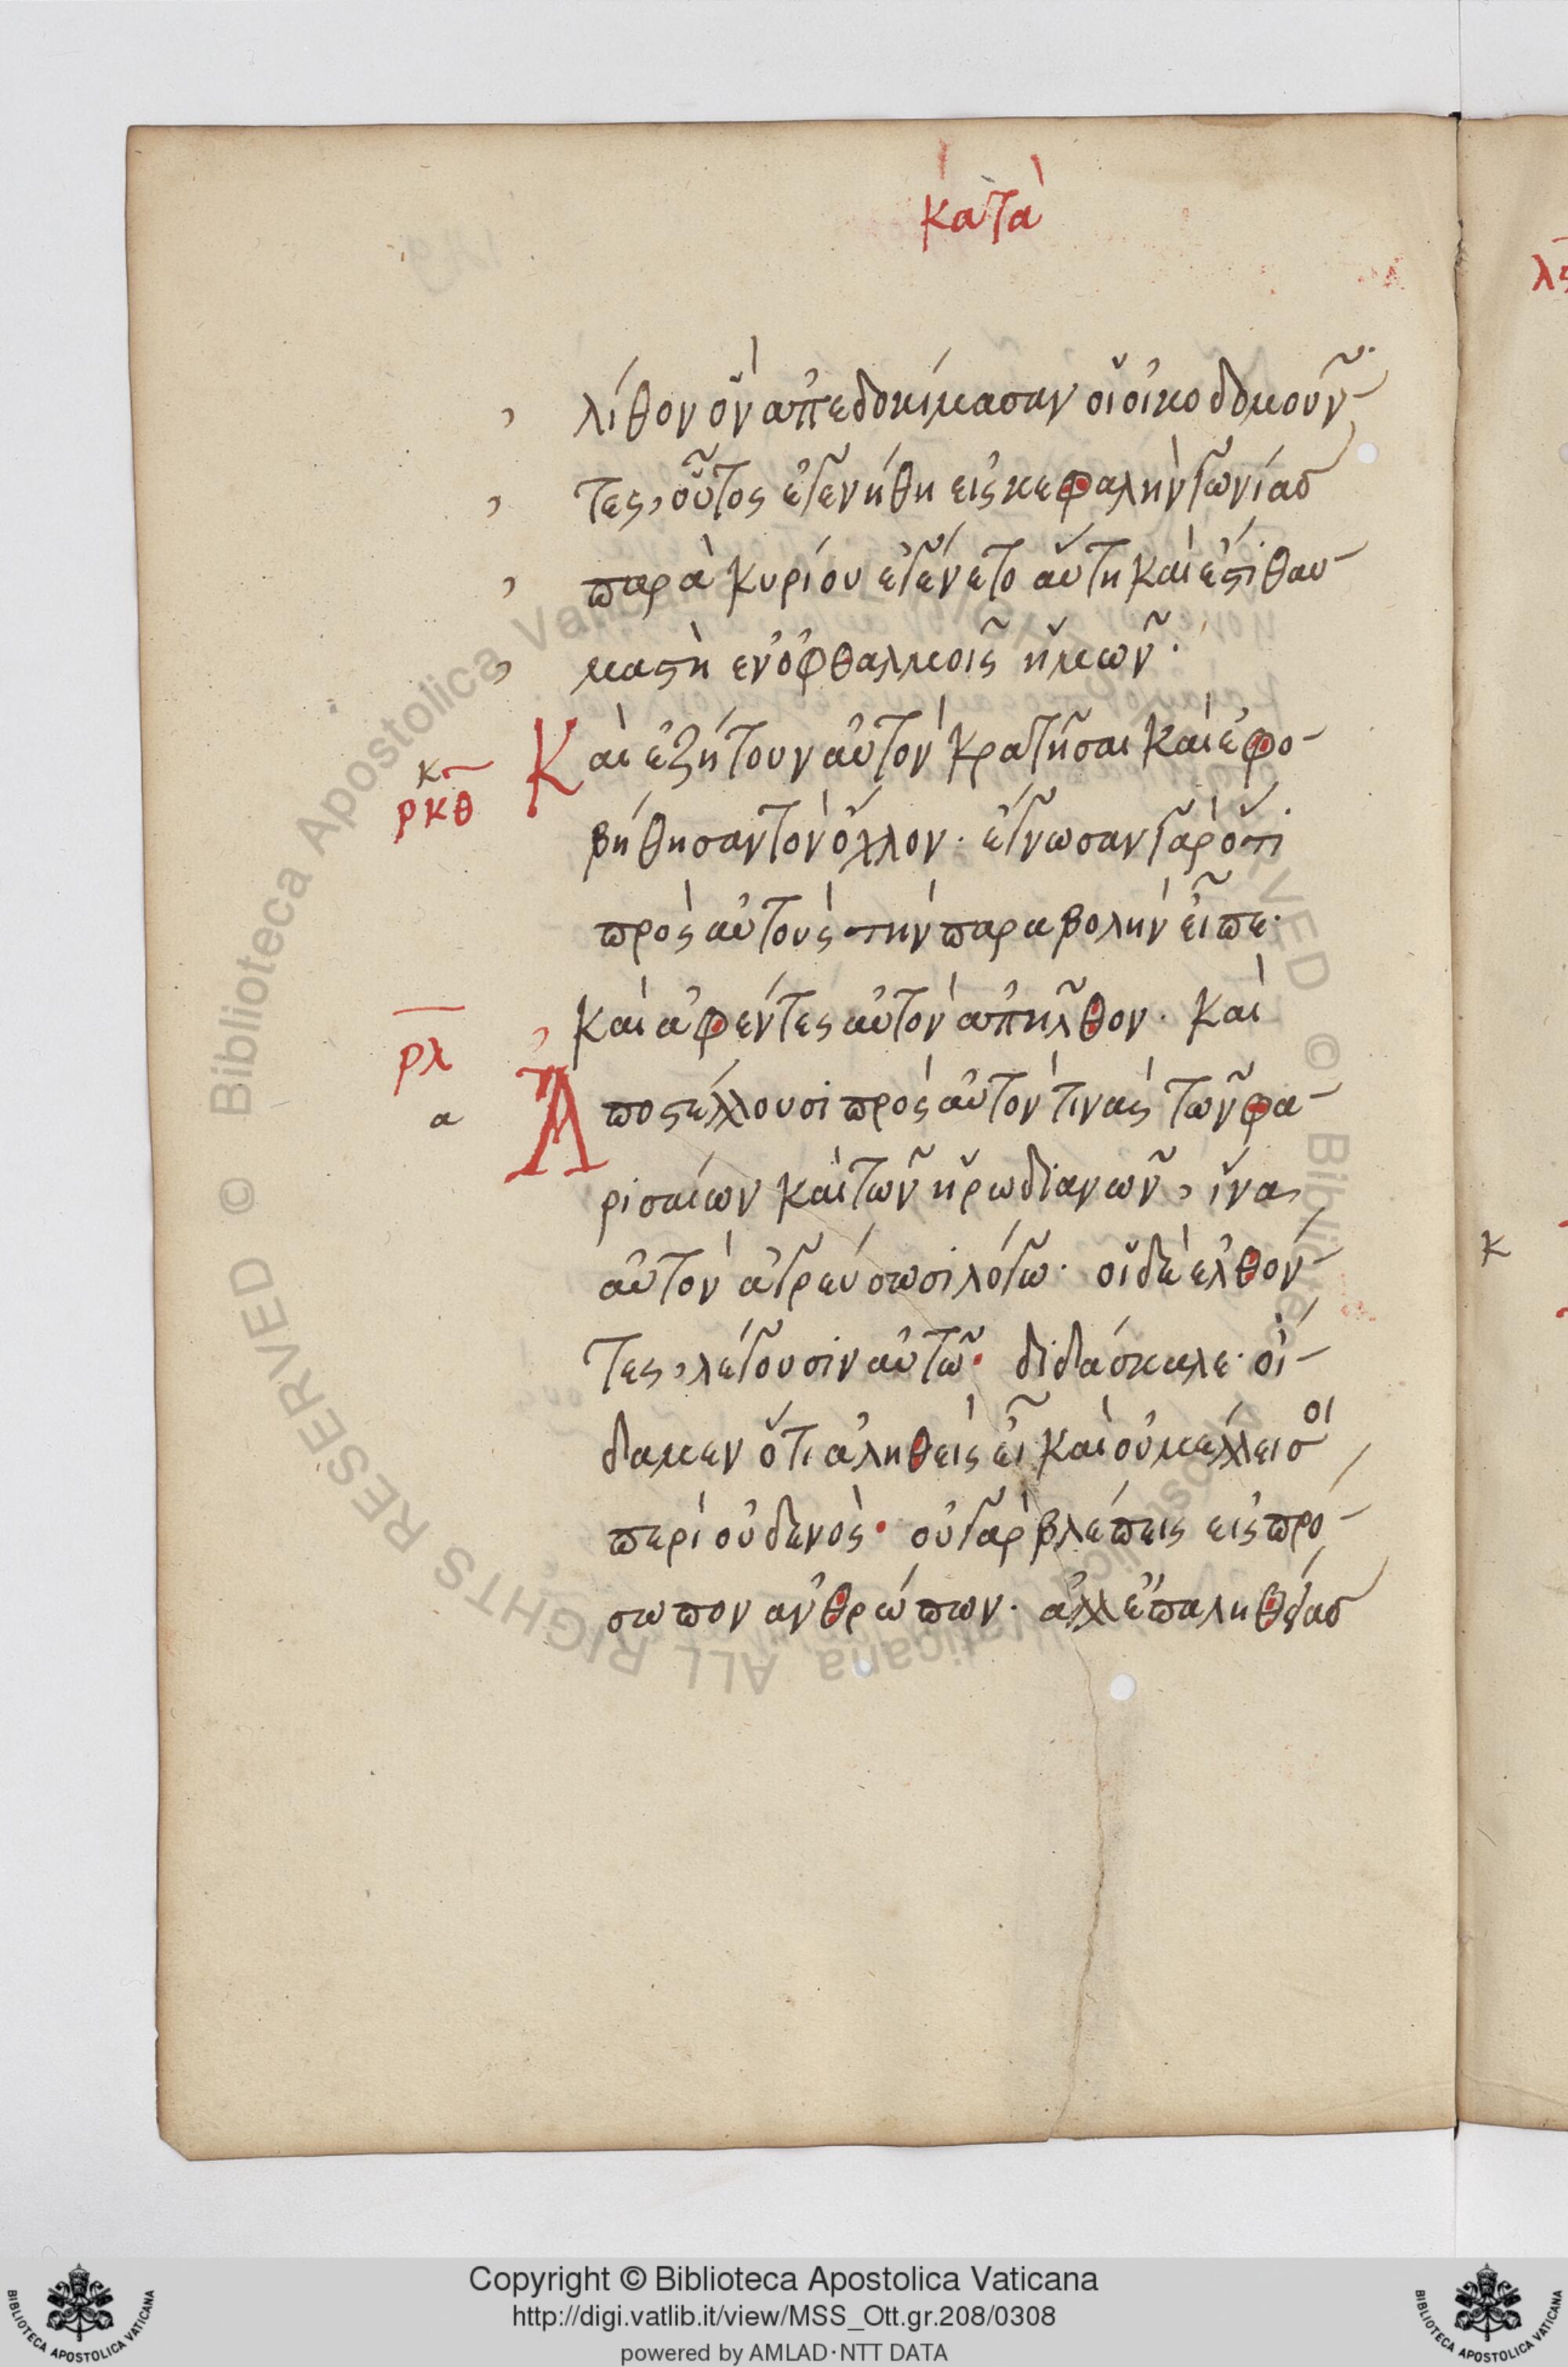 κατὰ
λίθον ὃν ἀπεδοκίμασαν οἱ οἰκοδομοῦν-
τες, οὗτος ἐγενήθη εἰς κεφαλὴν γωνίασ
παρὰ κυρίου ἐγένετο αὕτη καὶ ἔστι θαυ-
μαστὴ ἐν ὀφθαλμοῖς ἡμῶν·
κ ρκθ Καὶ ἐζήτουν αὐτὸν κρατῆσαι καὶ ἐφο-
βήθησαν τὸν ὄχλον· ἔγνωσαν γὰρ ὅτι
πρὸς αὐτοὺς τὴν παραβολὴν εἶπε·
καὶ ἀφέντες αὐτὸν ἀπῆλθον· καὶ
ρλ α Ἀποστέλλουσι πρὸς αὐτόν τινὰς τῶν φα-
ρισαίων καὶ τῶν ἡρωδιανῶν, ἵνα
αὐτὸν ἀγρεύσωσι λόγω· οἱ δὲ ἐλθόν-
τες, λέγουσιν αὐτῶ· διδάσκαλε· οἴ-
δαμεν ὅτι ἀληθεὶς εἶ καὶ οὐ μέλλει σοι
περὶ οὐδενὸς· οὐ γὰρ βλέπεις εἰς πρό-
σωπον ἀνθρώπων· ἀλλ ἐπ αληθείασ
λς
κ
Copyright © Biblioteca Apostolica Vaticana
http://digi.vatlib.it/view/MSS_Ott.gr.208/0308
powered by AMLAD·NTT DATA
BIBLIOTECA APOSTOLICA VATICANA
BIBLIOTECA APOSTOLICA VATICANA
© Biblioteca Apostolica Vaticana ALL RIGHTS RESERVED